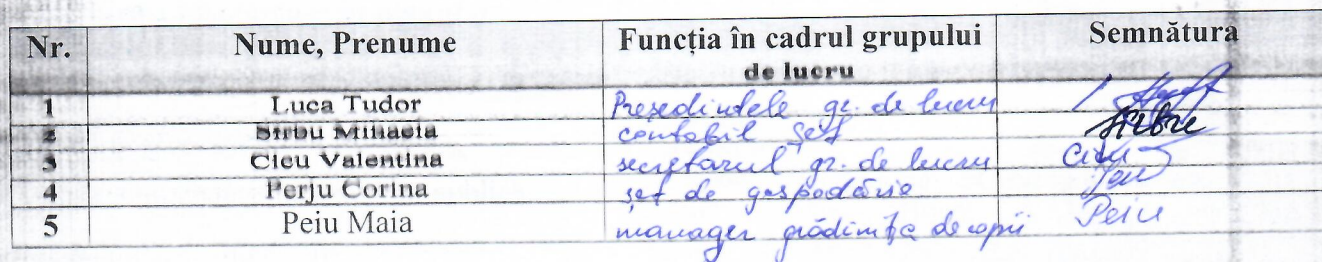 Nr. Nume, Prenume Funcția în cadrul grupului de lucru Semnătura
1 Luca Tudor Președintele gr. de lucru
2 Sîrbu Mihaela contabil șef Sîrbu
3 Cicu Valentina secretarul gr. de lucru Cicu
4 Perju Corina șef de gospodărie
5 Peiu Maia manager grădinița de copii Peiu